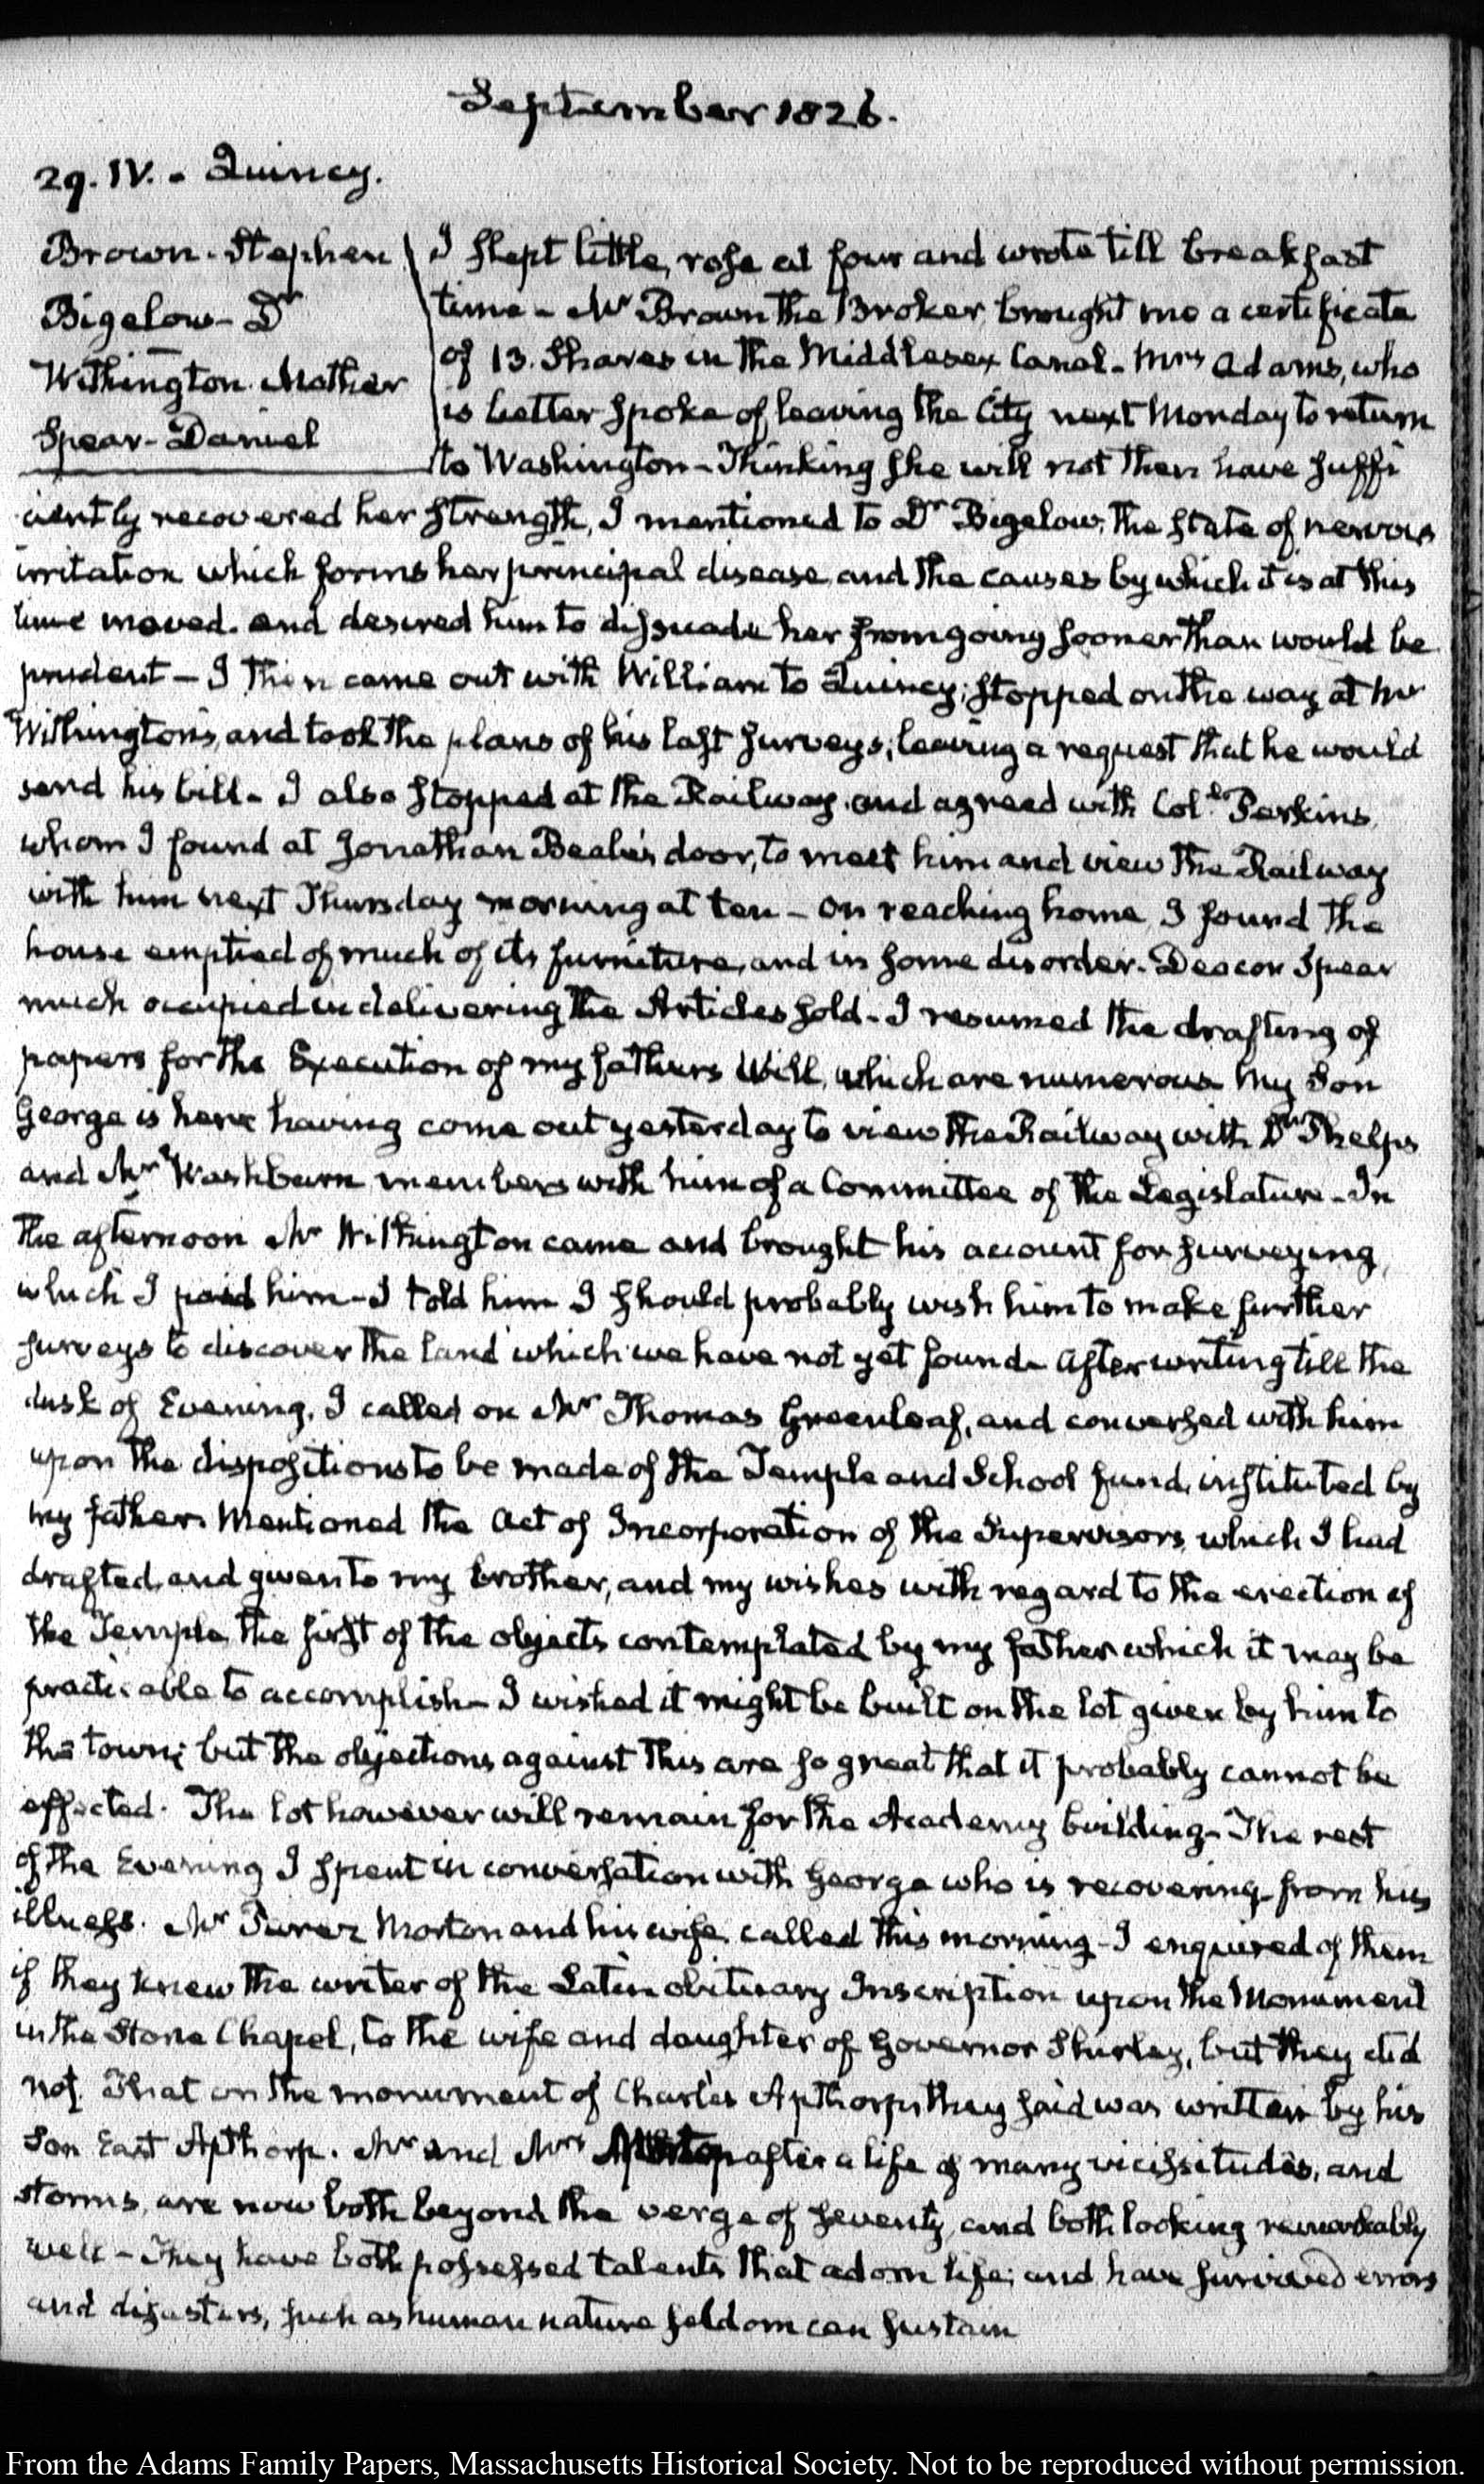 September 1826.
29. IV. - Quincy.
Brown. Stephen
Bigelow - Dr
Withington. Mather
Spear - Daniel
I slept little, rose at four and wrote till breakfast
time - Mr Brown the Broker, brought me a certificate
of 13. Shares in the Middlesex Canal - Mrs Adams, who
is better spoke of leaving the City next Monday to return
to Washington - Thinking she will not then have suffi
ciently recovered her strength, I mentioned to Dr Bigelow, the state of nervous
irritation which forms her principal disease, and the causes by which it is at this
time moved. and desired him to dissuade her from going sooner than would be
prudent - I then came out with William to Quincy; stopped on the way at Mr
Withington's, and took the plans of his last surveys; leaving a request that he would
send his bill - I also stopped at the Railway, and agreed with Coll. Perkins,
whom I found at Jonathan Beale's door, to meet him and view the Railway
with him next Thursday morning at ten - On reaching home, I found the
house emptied of much of its furniture, and in some disorder. Deacon Spear
much occupied in delivering the Articles sold - I resumed the drafting of
papers for the Execution of my fathers Will, which are numerous. My Son
George is here having come out yesterday to view the Railway with Dr Phelps
and Mr Washburn members with him of a Committee of the Legislature - In
the afternoon Mr Withington came and brought his account for surveying,
which I paid him - I told him I should probably wish him to make further
surveys to discover the land which we have not yet found. After writing till the
dusk of Evening, I called on Mr Thomas Greenleaf, and conversed with him
upon the dispositions to be made of the Temple and School fund, instituted by
my father. Mentioned the Act of Incorporation of the Supervisors, which I had
drafted, and given to my brother, and my wishes with regard to the erection of
the Temple, the first of the objects contemplated by my father which it may be
practicable to accomplish - I wished it might be built on the lot given by him to
the town; but the objections against this are so great that it probably cannot be
effected. The lot however will remain for the Academy building - The rest
of the Evening I spent in conversation with George who is recovering from his
illness. Mr Perez Morton and his wife, called this morning - I enquired of them
if they knew the writer of the Latin obituary Inscription upon the Monument
in the Stone Chapel, to the wife and daughter of Governor Shirley, but they did
not. That on the monument of Charles Apthorp, they said was written by his
Son East Apthorp. Mr and Mrs Morton after a life of many vicissitudes, and
storms, are now both beyond the verge of seventy, and both looking remarkably
well - They have both possessed talents that adorn life; and have survived errors
and disasters, such as human nature seldom can sustain
From the Adams Family Papers, Massachusetts Historical Society. Not to be reproduced without permission.